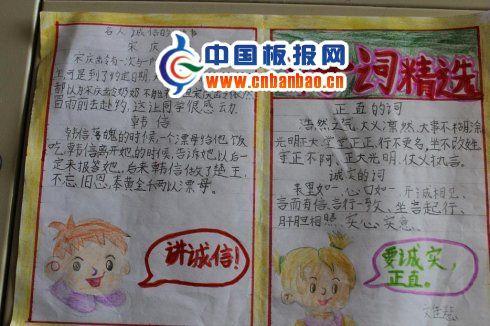 名人诚信的
宋庆
宋庆出
可是到了约定日期,
都以为宋庆
言而前去赴约,这让同学很感动。
韩信
韩信落魄的时候,一个漂母给他饭
吃,韩信离开她的时候,告诉她以后一
定来报答她,后来韩信做了楚王,
不忘旧恩,奉黄金千两以漂母。
讲诚信!
中国板报网
www.cnbanbao.cn
词精选
正直的词
浩然之气,大义凛然,大事不糊涂,
光明正大,堂堂正正,行不更名,坐不改姓,
守正不阿,正大光明,仗义执言。
诚实的词
表里如一,心口如一,开诚相见,
言而有信,言行一致,坐言起行,
肝胆相照,实心实意。
要诚实,
正直。